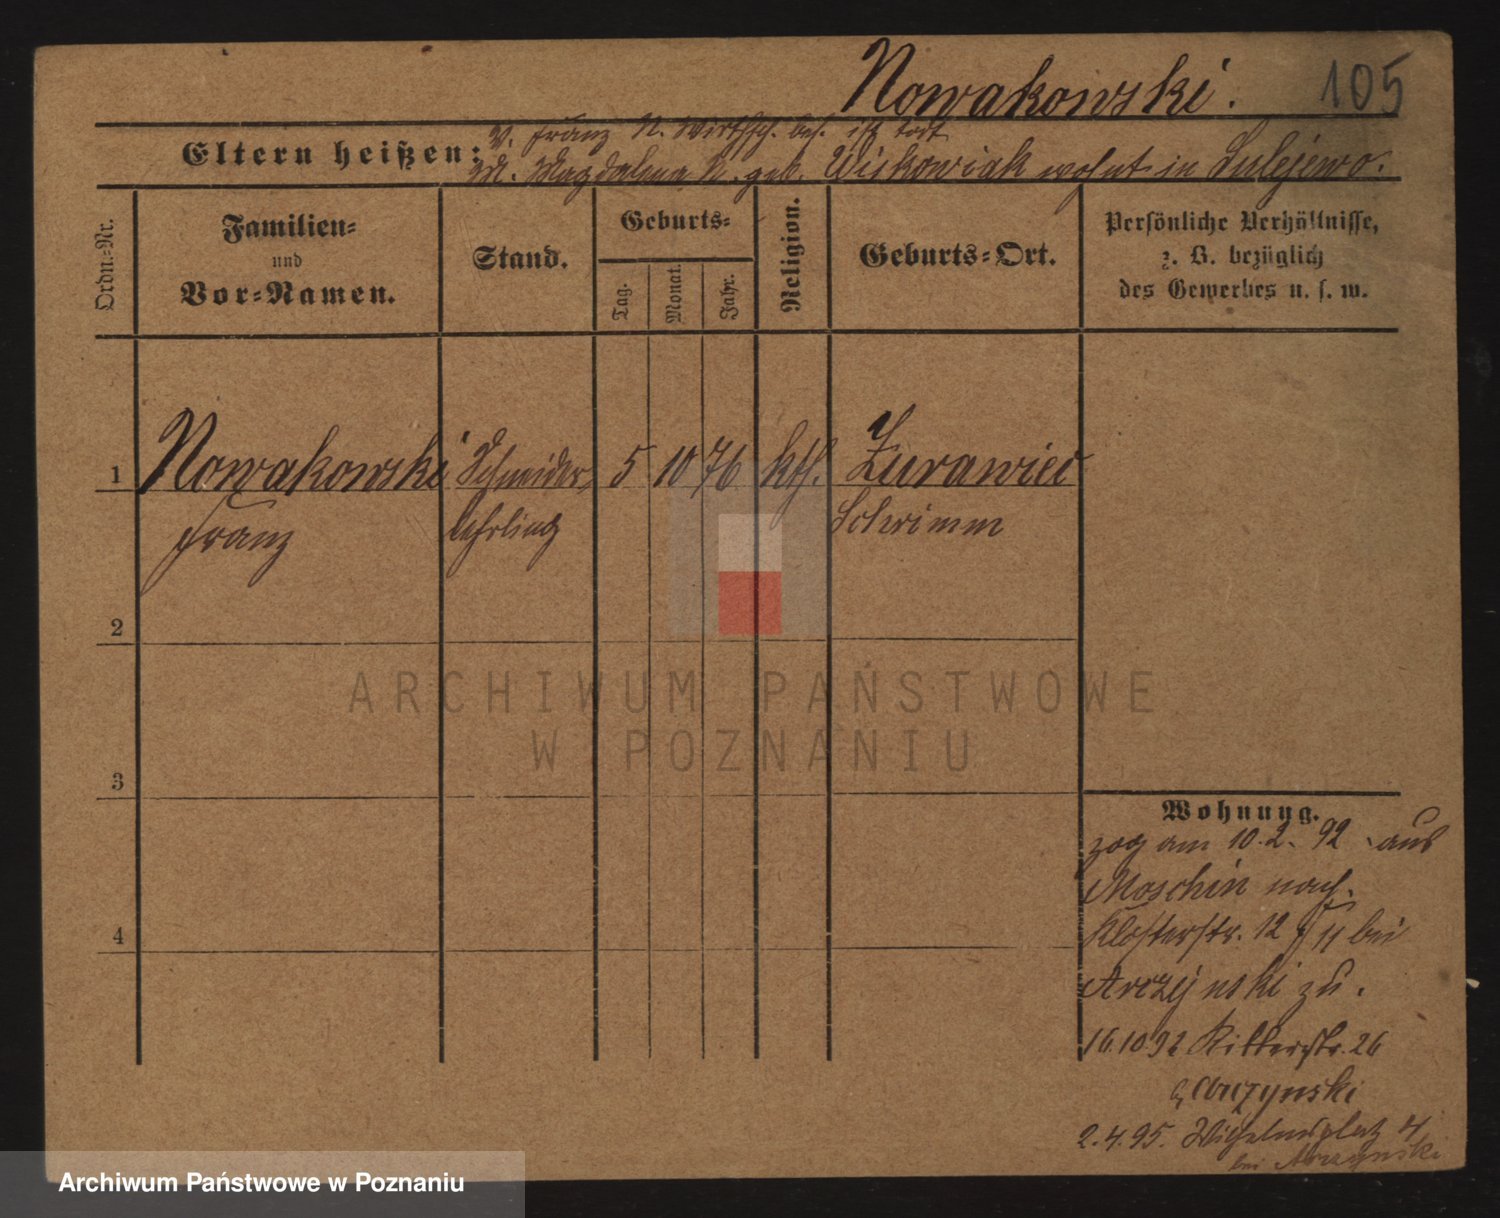 Nowakowski. 105
Eltern heißen: V. Franz N. Wirthsch. bes. ist todt
M. Magdalena N. geb. Wiskowiak wohnt in Sulejewo.
Ordn.-Nr.
Familien-
und
Vor-Namen.
Stand.
Geburts-
Tag. Monat. Jahr.
Religion.
Geburts-Ort.
Persönliche Verhältnisse,
z. B. bezüglich
des Gewerbes u. s. w.
1 Nowakowski Schneider 5 10 76 kth. Zurawiec
Franz lehrling Schrimm
2
3
4
ARCHIWUM PAŃSTWOWE
W POZNANIU
Wohnung.
zog am 10.2.92 aus
Moschin nach
Klosterstr. 12 bei
zu.
16.10.92 Ritterstr. 26
2.4.95. Wilhelmsplatz 4
bei
Archiwum Państwowe w Poznaniu